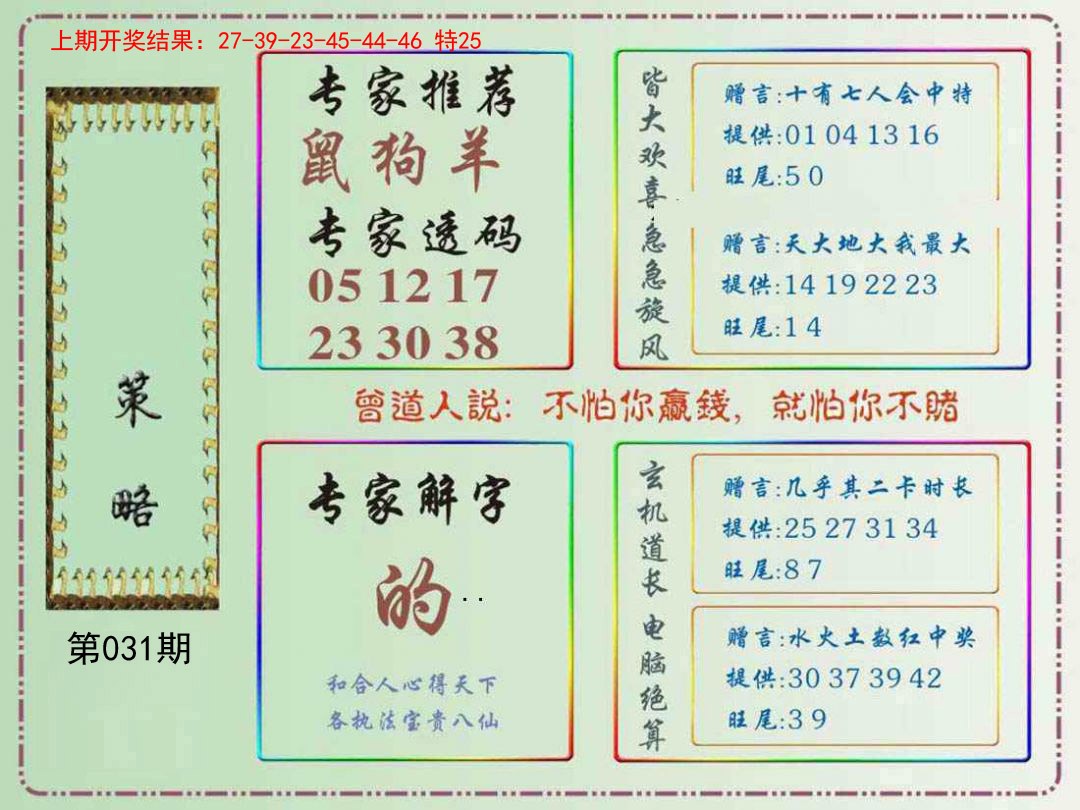 上期开奖结果：27-39-23-45-44-46 特25
策略
第031期
专家推荐
鼠狗羊
专家透码
05 12 17
23 30 38
皆大欢喜
赠言:十有七人会中特
提供:01 04 13 16
旺尾:5 0
急急旋风
赠言:天大地大我最大
提供:14 19 22 23
旺尾:1 4
曾道人説：不怕你贏錢，就怕你不賭
专家解字
的
和合人心得天下
各执法宝贵八仙
玄机道长
赠言:几乎其二卡时长
提供:25 27 31 34
旺尾:8 7
电脑绝算
赠言:水火土数红中奖
提供:30 37 39 42
旺尾:3 9